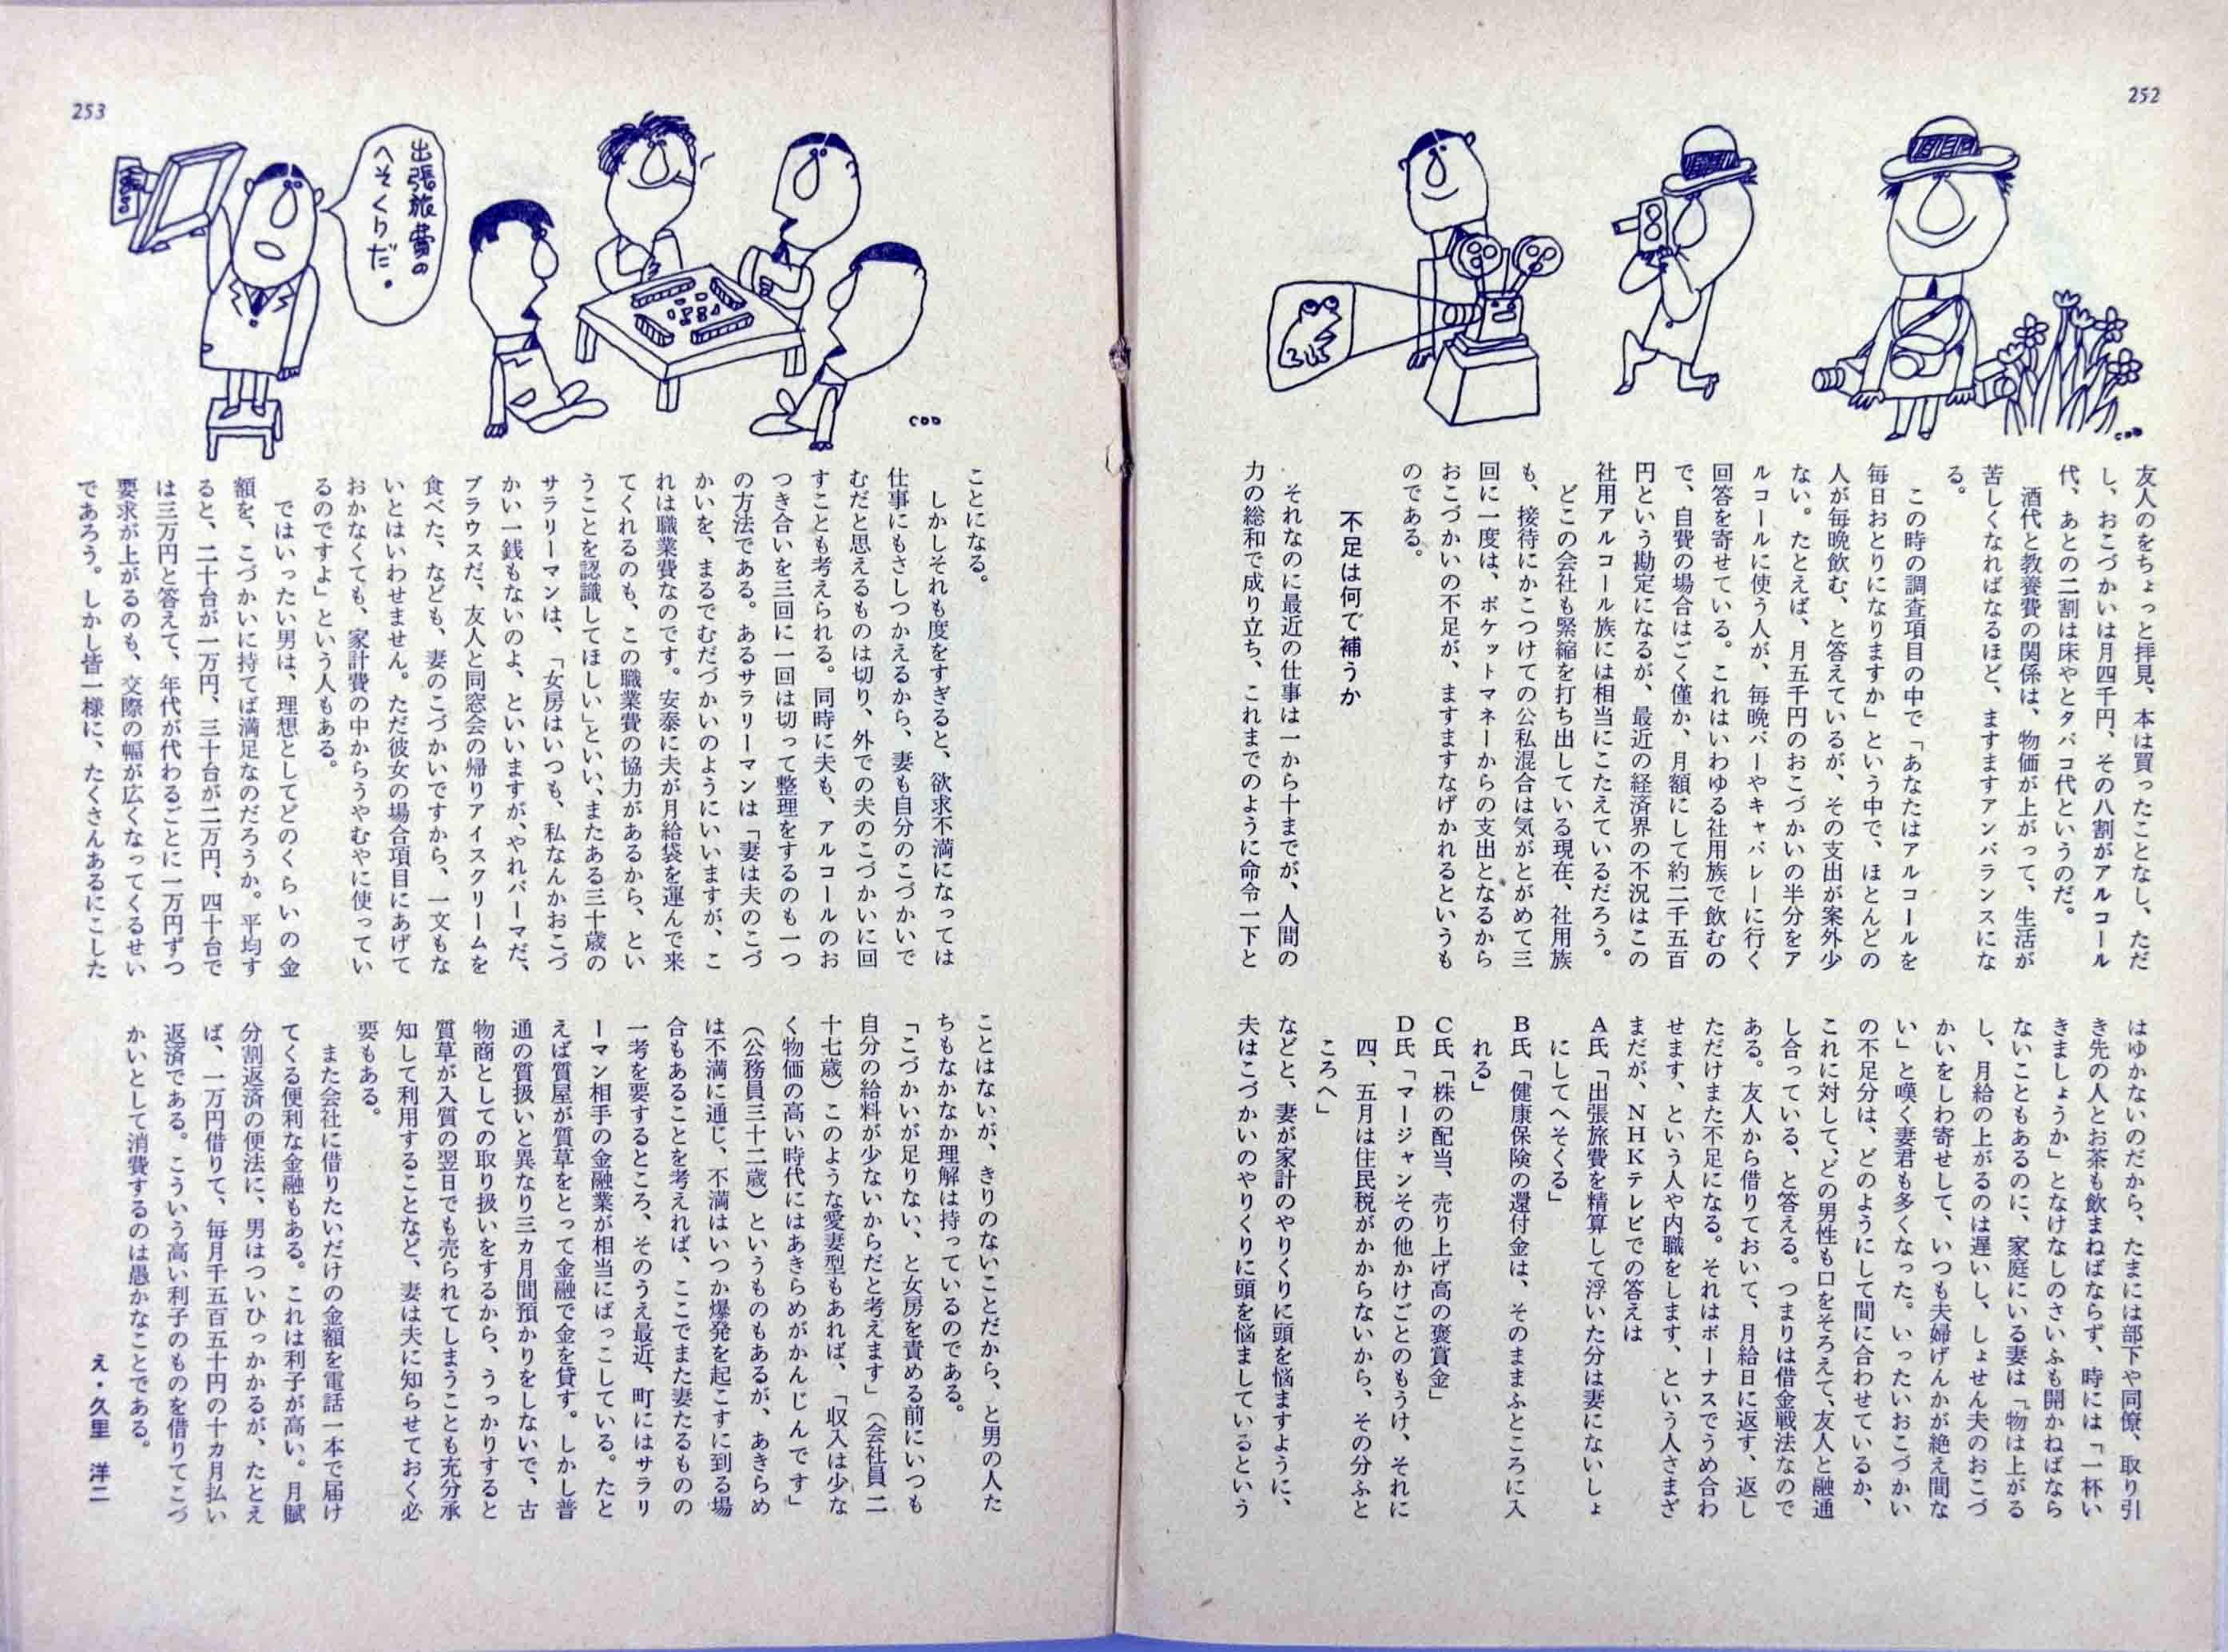 252
友人のをちょっと拝見、本は買ったことなし、ただ
し、おこづかいは月四千円、その八割がアルコール
代、あとの二割は床やとタバコ代というのだ。
酒代と教養費の関係は、物価が上がって、生活が
苦しくなればなるほど、ますますアンバランスにな
る。
この時の調査項目の中で「あなたはアルコールを
毎日おとりになりますか」という中で、ほとんどの
人が毎晩飲む、と答えているが、その支出が案外少
ない。たとえば、月五千円のおこづかいの半分をア
ルコールに使う人が、毎晩バーやキャバレーに行く
回答を寄せている。これはいわゆる社用族で飲むの
で、自費の場合はごく僅か、月額にして約二千五百
円という勘定になるが、最近の経済界の不況はこの
社用アルコール族には相当にこたえているだろう。
どこの会社も緊縮を打ち出している現在、社用族
も、接待にかこつけての公私混合は気がとがめて三
回に一度は、ポケットマネーからの支出となるから
おこづかいの不足が、ますますなげかれるというも
のである。
不足は何で補うか
それなのに最近の仕事は一から十までが、人間の
力の総和で成り立ち、これまでのように命令一下と
はゆかないのだから、たまには部下や同僚、取り引
き先の人とお茶も飲まねばならず、時には「一杯い
きましょうか」となけなしのさいふも開かねばなら
ないこともあるのに、家庭にいる妻は「物は上がる
し、月給の上がるのは遅いし、しょせん夫のおこづ
かいをしわ寄せして、いつも夫婦げんかが絶え間な
い」と嘆く妻君も多くなった。いったいおこづかい
の不足分は、どのようにして間に合わせているか、
これに対して、どの男性も口をそろえて、友人と融通
し合っている、と答える。つまりは借金戦法なので
ある。友人から借りておいて、月給日に返す、返し
ただけまた不足になる。それはボーナスでうめ合わ
せます、という人や内職をします、という人さまざ
まだが、NHKテレビでの答えは
A氏「出張旅費を精算して浮いた分は妻にないしょ
にしてへそくる」
B氏「健康保険の還付金は、そのままふところに入
れる」
C氏「株の配当、売り上げ高の褒賞金」
D氏「マージャンその他かけごとのもうけ、それに
四、五月は住民税がかからないから、その分ふと
ころへ」
などと、妻が家計のやりくりに頭を悩ますように、
夫はこづかいのやりくりに頭を悩ましているという
253
出張旅費の
へそくりだ。
ことになる。
しかしそれも度をすぎると、欲求不満になっては
仕事にもさしつかえるから、妻も自分のこづかいで
むだと思えるものは切り、外での夫のこづかいに回
すことも考えられる。同時に夫も、アルコールのお
つき合いを三回に一回は切って整理をするのも一つ
の方法である。あるサラリーマンは「妻は夫のこづ
かいを、まるでむだづかいのようにいいますが、こ
れは職業費なのです。安泰に夫が月給袋を運んで来
てくれるのも、この職業費の協力があるから、とい
うことを認識してほしい」といい、またある三十歳の
サラリーマンは、「女房はいつも、私なんかおこづ
かい一銭もないのよ、といいますが、やれパーマだ、
ブラウスだ、友人と同窓会の帰りアイスクリームを
食べた、なども、妻のこづかいですから、一文もな
いとはいわせません。ただ彼女の場合項目にあげて
おかなくても、家計費の中からうやむやに使ってい
るのですよ」という人もある。
ではいったい男は、理想としてどのくらいの金
額を、こづかいに持てば満足なのだろうか。平均す
ると、二十台が一万円、三十台が二万円、四十台で
は三万円と答えて、年代が代わるごとに一万円ずつ
要求が上がるのも、交際の幅が広くなってくるせい
であろう。しかし皆一様に、たくさんあるにこした
ことはないが、きりのないことだから、と男の人た
ちもなかなか理解は持っているのである。
「こづかいが足りない、と女房を責める前にいつも
自分の給料が少ないからだと考えます」（会社員二
十七歳）このような愛妻型もあれば、「収入は少な
く物価の高い時代にはあきらめがかんじんです」
（公務員三十二歳）というものもあるが、あきらめ
は不満に通じ、不満はいつか爆発を起こすに到る場
合もあることを考えれば、ここでまた妻たるものの
一考を要するところ、そのうえ最近、町にはサラリ
ーマン相手の金融業が相当にばっこしている。たと
えば質屋が質草をとって金融で金を貸す。しかし普
通の質扱いと異なり三カ月間預かりをしないで、古
物商としての取り扱いをするから、うっかりすると
質草が入質の翌日でも売られてしまうことも充分承
知して利用することなど、妻は夫に知らせておく必
要もある。
また会社に借りたいだけの金額を電話一本で届け
てくる便利な金融もある。これは利子が高い。月賦
分割返済の便法に、男はついひっかかるが、たとえ
ば、一万円借りて、毎月千五百五十円の十カ月払い
返済である。こういう高い利子のものを借りてこづ
かいとして消費するのは愚かなことである。
え・久里 洋二